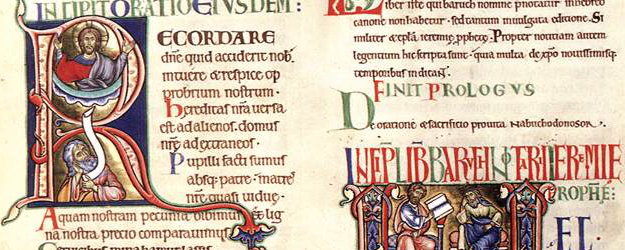 INCIPIT ORATIO EIUSDEM:
RECORDARE
dñe quid acciderit nob̄.
intuere & respice op
probrium nostrum.
hereditas nr̄a uersa
est ad alienos. domus
nr̄e ad extraneos.
Pupilli facti sumus
absq; patre. matres
nr̄e quasi uidue.
Aquam nostram pecunia bibimus. & lig
na nostra precio comparauimus.
Liber iste qui baruch nomine pnotatur in hebreo
canone non habetur. sed tantum in uulgata editione. Si
militer & epl̄a ieremie pphete. Propter notitiam autem
legentium hic scripta sunt. quia multa de xp̄o nouissimisq;
temporibus indicant.
FINIT PROLOGUS
De oratione & sacrificio pro uita Nabuchodonosor.
INCIPIT LIB BARUCH NOTARII IEREMIE
PROPHE:
ET